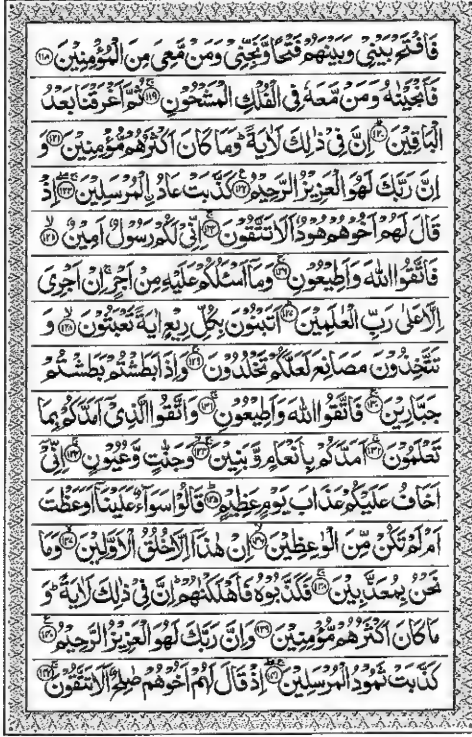 فَافْتَحْ بَيْنِيْ وَبَيْنَهُمْ فَتْحًا وَّنَجِّنِيْ وَمَنْ مَّعِيَ مِنَ الْمُؤْمِنِيْنَ ﴿۱۱۸﴾
فَاَنْجَيْنٰهُ وَمَنْ مَّعَهٗ فِي الْفُلْكِ الْمَشْحُوْنِ ﴿۱۱۹﴾ ثُمَّ اَغْرَقْنَا بَعْدُ
الْبَاقِيْنَ ﴿۱۲۰﴾ اِنَّ فِيْ ذٰلِكَ لَاٰيَةً ؕ وَمَا كَانَ اَكْثَرُهُمْ مُّؤْمِنِيْنَ ﴿۱۲۱﴾ وَ
اِنَّ رَبَّكَ لَهُوَ الْعَزِيْزُ الرَّحِيْمُ ﴿۱۲۲﴾ كَذَّبَتْ عَادُ ۨالْمُرْسَلِيْنَ ﴿۱۲۳﴾ اِذْ
قَالَ لَهُمْ اَخُوْهُمْ هُوْدٌ اَلَا تَتَّقُوْنَ ﴿۱۲۴﴾ اِنِّيْ لَكُمْ رَسُوْلٌ اَمِيْنٌ ﴿۱۲۵﴾
فَاتَّقُوا اللّٰهَ وَاَطِيْعُوْنِ ﴿۱۲۶﴾ وَمَاۤ اَسْـَٔلُكُمْ عَلَيْهِ مِنْ اَجْرٍ ۚ اِنْ اَجْرِيَ
اِلَّا عَلٰى رَبِّ الْعٰلَمِيْنَ ﴿۱۲۷﴾ اَتَبْنُوْنَ بِكُلِّ رِيْعٍ اٰيَةً تَعْبَثُوْنَ ﴿۱۲۸﴾ وَ
تَتَّخِذُوْنَ مَصَانِعَ لَعَلَّكُمْ تَخْلُدُوْنَ ﴿۱۲۹﴾ وَاِذَا بَطَشْتُمْ بَطَشْتُمْ
جَبَّارِيْنَ ﴿۱۳۰﴾ فَاتَّقُوا اللّٰهَ وَاَطِيْعُوْنِ ﴿۱۳۱﴾ وَاتَّقُوا الَّذِيْۤ اَمَدَّكُمْ بِمَا
تَعْلَمُوْنَ ﴿۱۳۲﴾ اَمَدَّكُمْ بِاَنْعَامٍ وَّبَنِيْنَ ﴿۱۳۳﴾ وَجَنّٰتٍ وَّعُيُوْنٍ ﴿۱۳۴﴾ اِنِّيْۤ
اَخَافُ عَلَيْكُمْ عَذَابَ يَوْمٍ عَظِيْمٍ ﴿۱۳۵﴾ قَالُوْا سَوَآءٌ عَلَيْنَاۤ اَوَعَظْتَ
اَمْ لَمْ تَكُنْ مِّنَ الْوٰعِظِيْنَ ﴿۱۳۶﴾ اِنْ هٰذَاۤ اِلَّا خُلُقُ الْاَوَّلِيْنَ ﴿۱۳۷﴾ وَمَا
نَحْنُ بِمُعَذَّبِيْنَ ﴿۱۳۸﴾ فَكَذَّبُوْهُ فَاَهْلَكْنٰهُمْ ؕ اِنَّ فِيْ ذٰلِكَ لَاٰيَةً ؕ وَ
مَا كَانَ اَكْثَرُهُمْ مُّؤْمِنِيْنَ ﴿۱۳۹﴾ وَاِنَّ رَبَّكَ لَهُوَ الْعَزِيْزُ الرَّحِيْمُ ﴿۱۴۰﴾
كَذَّبَتْ ثَمُوْدُ الْمُرْسَلِيْنَ ﴿۱۴۱﴾ اِذْ قَالَ لَهُمْ اَخُوْهُمْ صٰلِحٌ اَلَا تَتَّقُوْنَ ﴿۱۴۲﴾